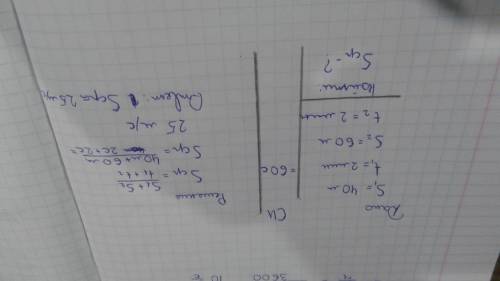 Дано
S₁ = 40 м
t₁ = 2 мин
S₂ = 60 м
t₂ = 2 мин
Найти:
Sср - ?
СИ
= 60с
Решение
Sср = (S₁ + S₂)/(t₁ + t₂)
Sср = (40м + 60м)/(2с + 2с) =
25 м/с
Ответ: Sср = 25 м/
3600